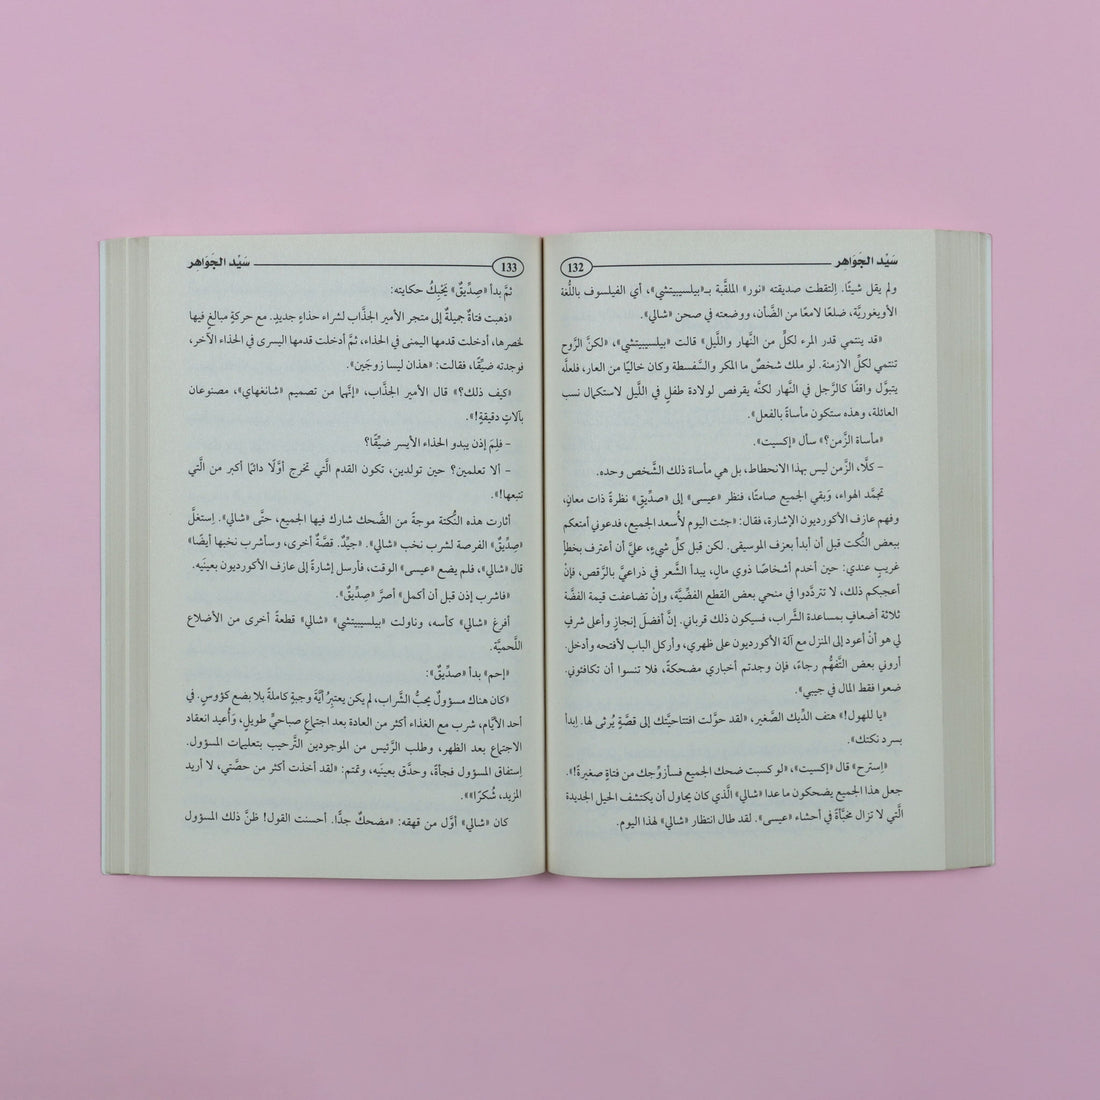 سَيِّد الجَوَاهِر
132
ولم يقل شيئًا. اِلتقطت صديقته «نور» الملقَّبة بـ«بيلسيبيتشي»، أي الفيلسوف باللُّغة
الأويغوريَّة، ضلعًا لامعًا من الضَّأن، ووضعته في صحن «شالي».
«قد ينتمي قدر المرء لكلٍّ من النَّهار واللَّيل» قالت «بيلسيبيتشي»، «لكنَّ الرَّوح
تنتمي لكلِّ الازمنة. لو ملك شخصٌ ما المكر والسَّفسطة وكان خاليًا من العار، فلعلَّه
يتبوَّل واقفًا كالرَّجل في النَّهار لكنَّه يقرفص لولادة طفلٍ في اللَّيل لاستكمال نسب
العائلة، وهذه ستكون مأساةً بالفعل».
«مأساة الزَّمن؟» سأل «إكسيت».
– كلَّا، الزَّمن ليس بهذا الانحطاط، بل هي مأساة ذلك الشَّخص وحده.
تجمَّد الهواء، وبَقي الجميع صامتًا، فنظر «عيسى» إلى «صدِّيقٍ» نظرةً ذات معانٍ،
وفهم عازف الأكورديون الإشارة، فقال: «جئت اليوم لأُسعد الجميع، فدعوني أمتعكم
ببعض النُّكت قبل أن أبدأ بعزف الموسيقى. لكن قبل كلِّ شيءٍ، عليَّ أن أعترف بخطأٍ
غريبٍ عندي: حين أخدم أشخاصًا ذوي مالٍ، يبدأ الشَّعر في ذراعيَّ بالرَّقص، فإنْ
أعجبكم ذلك، لا تتردَّدوا في منحي بعض القطع الفضيَّة، وإنْ تضاعفت قيمة الفضَّة
ثلاثة أضعافٍ بمساعدة الشَّراب، فسيكون ذلك قرباني. إنَّ أفضلَ إنجازٍ وأعلى شرفٍ
لي هو أنْ أعود إلى المنزل مع آلة الأكورديون على ظهري، وأركل الباب لأفتحه وأدخل.
أروني بعض التَّفهُّم رجاءً، فإن وجدتم أخباري مضحكةً، فلا تنسوا أن تكافئوني.
ضعوا فقط المال في جيبي».
«يا للهول!» هتف الدِّيك الصَّغير، «لقد حوَّلت افتتاحيَّتك إلى قصَّةٍ يُرثى لها. اِبدأ
بسرد نكتك».
«اِسترح» قال «إكسيت»، «لو كسبت ضحك الجميع فسأزوِّجك من فتاةٍ صغيرةٍ!».
جعل هذا الجميع يضحكون ما عدا «شالي» الَّذي كان يحاول أن يكتشف الحيل الجديدة
الَّتي لا تزال مخبَّأةً في أحشاء «عيسى». لقد طال انتظار «شالي» لهذا اليوم.
سَيِّد الجَوَاهِر
133
ثمَّ بدأ «صِدِّيقٌ» يَحْبِكُ حكايته:
«ذهبت فتاةٌ جميلةٌ إلى متجر الأمير الجذَّاب لشراء حذاءٍ جديدٍ. مع حركةٍ مبالغٍ فيها
لخصرها، أدخلت قدمها اليمنى في الحذاء، ثمَّ أدخلت قدمها اليسرى في الحذاء الآخر،
فوجدته ضيِّقًا، فقالت: «هذان ليسا زوجَين».
«كيف ذلك؟» قال الأمير الجذَّاب، «إنَّهما من تصميم «شانغهاي»، مصنوعان
بآلاتٍ دقيقةٍ!».
– فلِمَ إذن يبدو الحذاء الأيسر ضيِّقًا؟
– ألا تعلمين؟ حين تولدين، تكون القدم الَّتي تخرج أوَّلًا دائمًا أكبر من الَّتي
تتبعها!».
أثارت هذه النُّكتة موجةً من الضَّحك شارك فيها الجميع، حتَّى «شالي». اِستغلَّ
«صِدِّيقٌ» الفرصة لشرب نخب «شالي». «جيِّدٌ. قصَّةٌ أخرى، وسأشرب نخبها أيضًا»
قال «شالي»، فلم يضع «عيسى» الوقت، فأرسل إشارةً إلى عازف الأكورديون بعينَيه.
«فاشرب إذن قبل أن أكمل» أصرَّ «صِدِّيقٌ».
أفرغ «شالي» كأسه، وناولت «بيلسيبيتشي» «شالي» قطعةً أخرى من الأضلاع
اللَّحميَّة.
«إحم» بدأ «صدِّيقٌ»:
«كان هناك مسؤولٌ يحبُّ الشَّراب، لم يكن يعتبرُ أيَّةَ وجبةٍ كاملةً بلا بضع كؤوسٍ. في
أحد الأيَّام، شرب مع الغذاء أكثر من العادة بعد اجتماعٍ صباحيٍّ طويلٍ، وَأُعيد انعقاد
الاجتماع بعد الظهر، وطلب الرَّئيس من الموجودين التَّرحيب بتعليمات المسؤول.
اِستفاق المسؤول فجأةً، وحدَّق بعينَيه، وتمتم: «لقد أخذت أكثر من حصَّتي، لا أريد
المزيد، شُكرًا»».
كان «شالي» أوَّل من قهقه: «مضحكٌ جدًّا. أحسنت القول! ظنَّ ذلك المسؤول